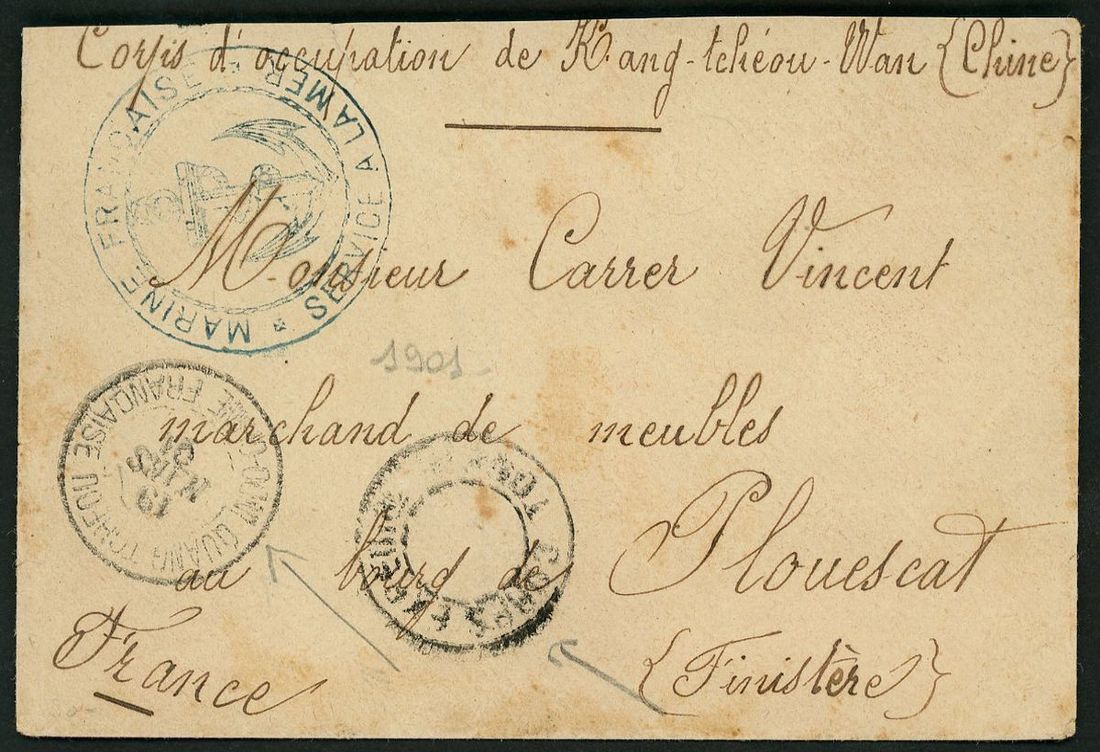 Corps d'occupation de K.ang-tchéou-Wan {Chine}
MARINE FRANÇAISE * SERVICE A LA MER *
Monsieur Carrer Vincent
1901
marchand de meubles
QUANG TCHEOU
FRANÇAISE
19
MARS
01
CORPS EXPED
au bourg de Plouescat
France
{Finistère}